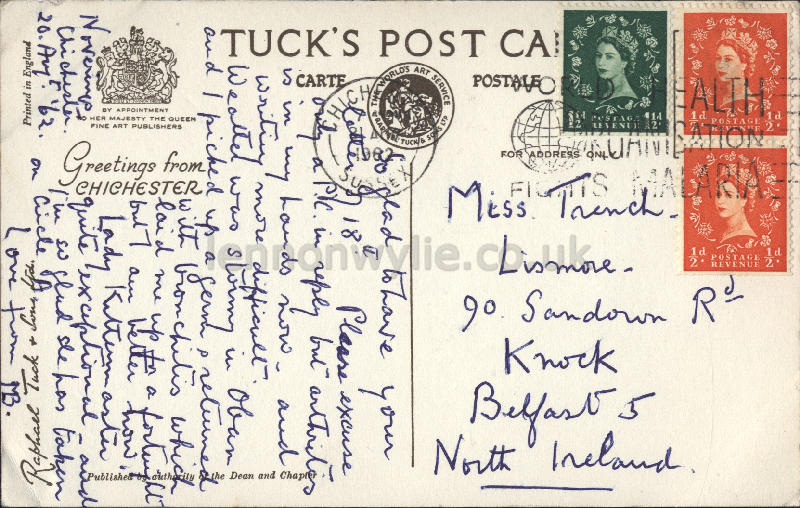 TUCK'S POST CA
CARTE
POSTALE
Printed in England
BY APPOINTMENT
TO HER MAJESTY THE QUEEN
FINE ART PUBLISHERS
Greetings from
CHICHESTER
THE WORLD'S ART SERVICE
RAPHAEL TUCK & SONS LTD
CHICHES
1962
SUSSEX
WORLD HEALTH
ORGANISATION
FIGHTS MALARIA
FOR ADDRESS ONLY
1½d 1½d
POSTAGE
REVENUE
½d ½d
POSTAGE
REVENUE
½d ½d
POSTAGE
REVENUE
Chichester
20. Aug '62
So glad to have your
letter of 18th. Please excuse
only a P.C. in reply but arthritis
is in my hands now - and
writing more difficult.
Weather was stormy in Oban
and I picked up a germ & returned
with bronchitis which
laid me up for a fortnight
but I am better now.
Lady Kittermaster
quite exceptional and
I'm so glad she has taken
on Circle
Love from MB.
Miss Trench -
Lismore -
90 Sandown Rd
Knock
Belfast 5
North Ireland.
Raphael Tuck & Sons, Ltd.
Published by authority of the Dean and Chapter
lennonwylie.co.uk